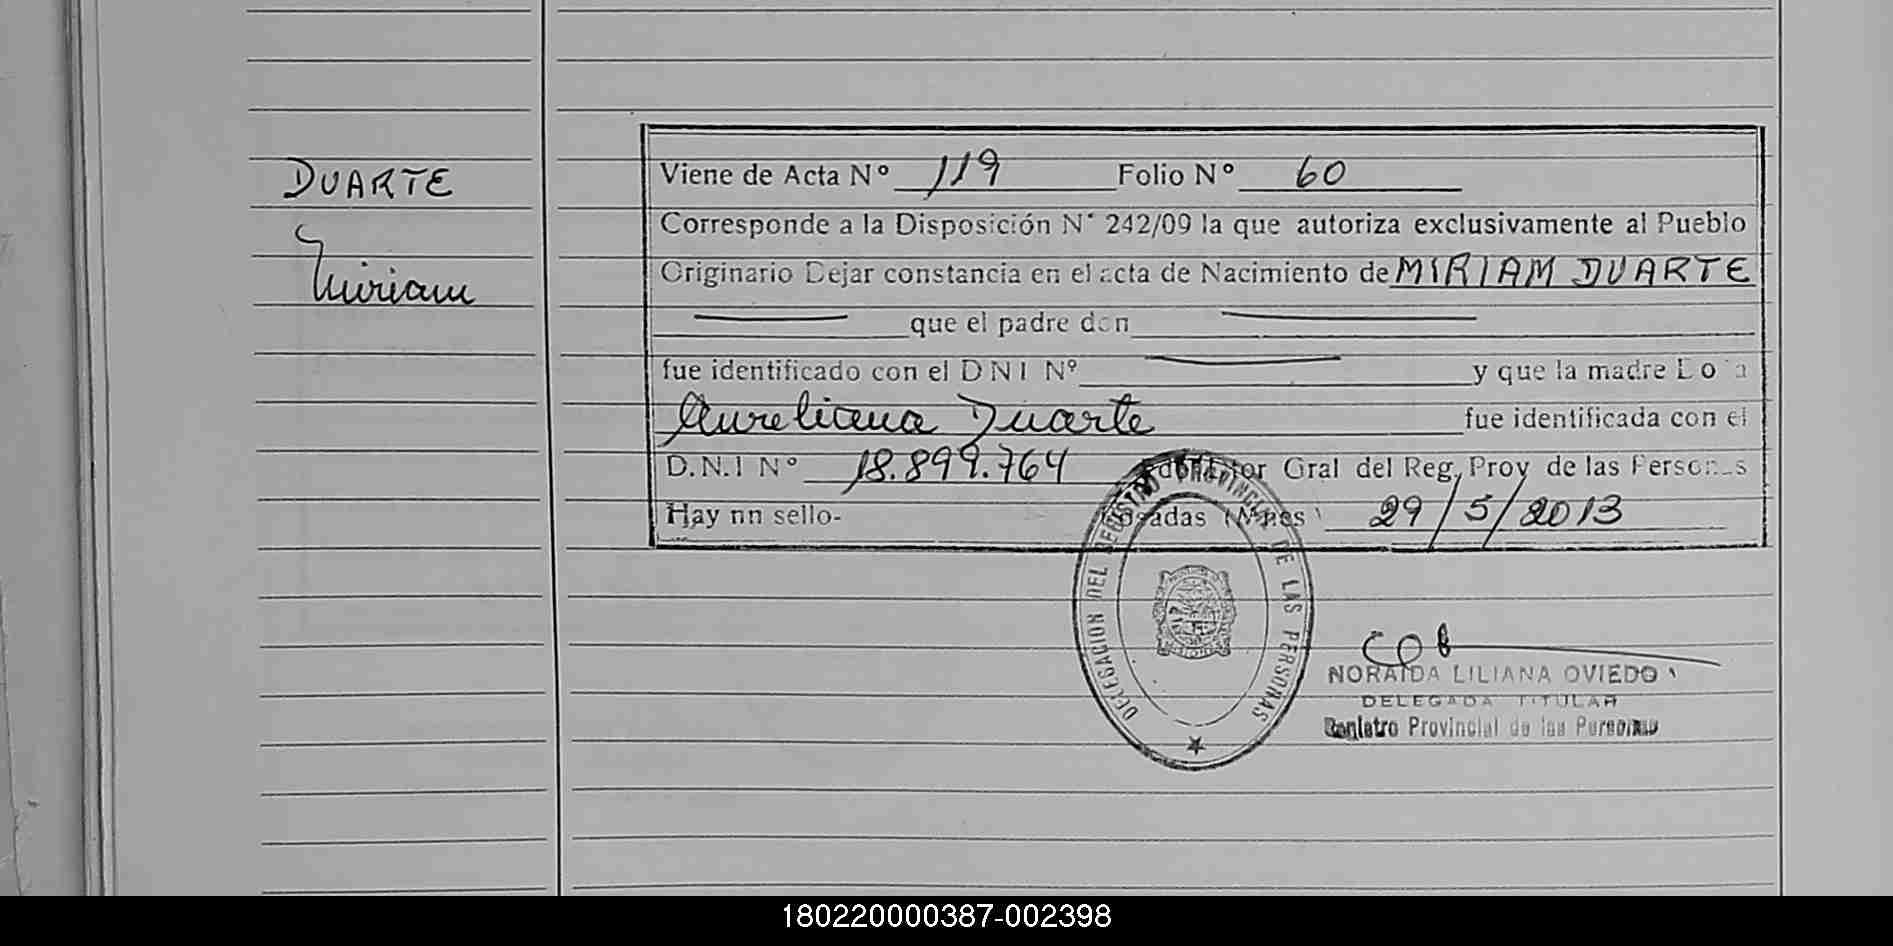 DUARTE
Miriam
Viene de Acta N° 119 Folio N° 60
Corresponde a la Disposición N° 242/09 la que autoriza exclusivamente al Pueblo
Originario Dejar constancia en el acta de Nacimiento de MIRIAM DUARTE
que el padre don
fue identificado con el DNI Nº y que la madre Doña
Aureliana Duarte fue identificada con el
D.N.I N° 18.899.764 Gral del Reg, Prov de las Personas
Hay nn sello- Posadas (Mnes) 29/5/2013
DELEGACION DEL REGISTRO PROVINCIAL DE LAS PERSONAS
NORAIDA LILIANA OVIEDO
DELEGADA TITULAR
Registro Provincial de las Personas
180220000387-002398